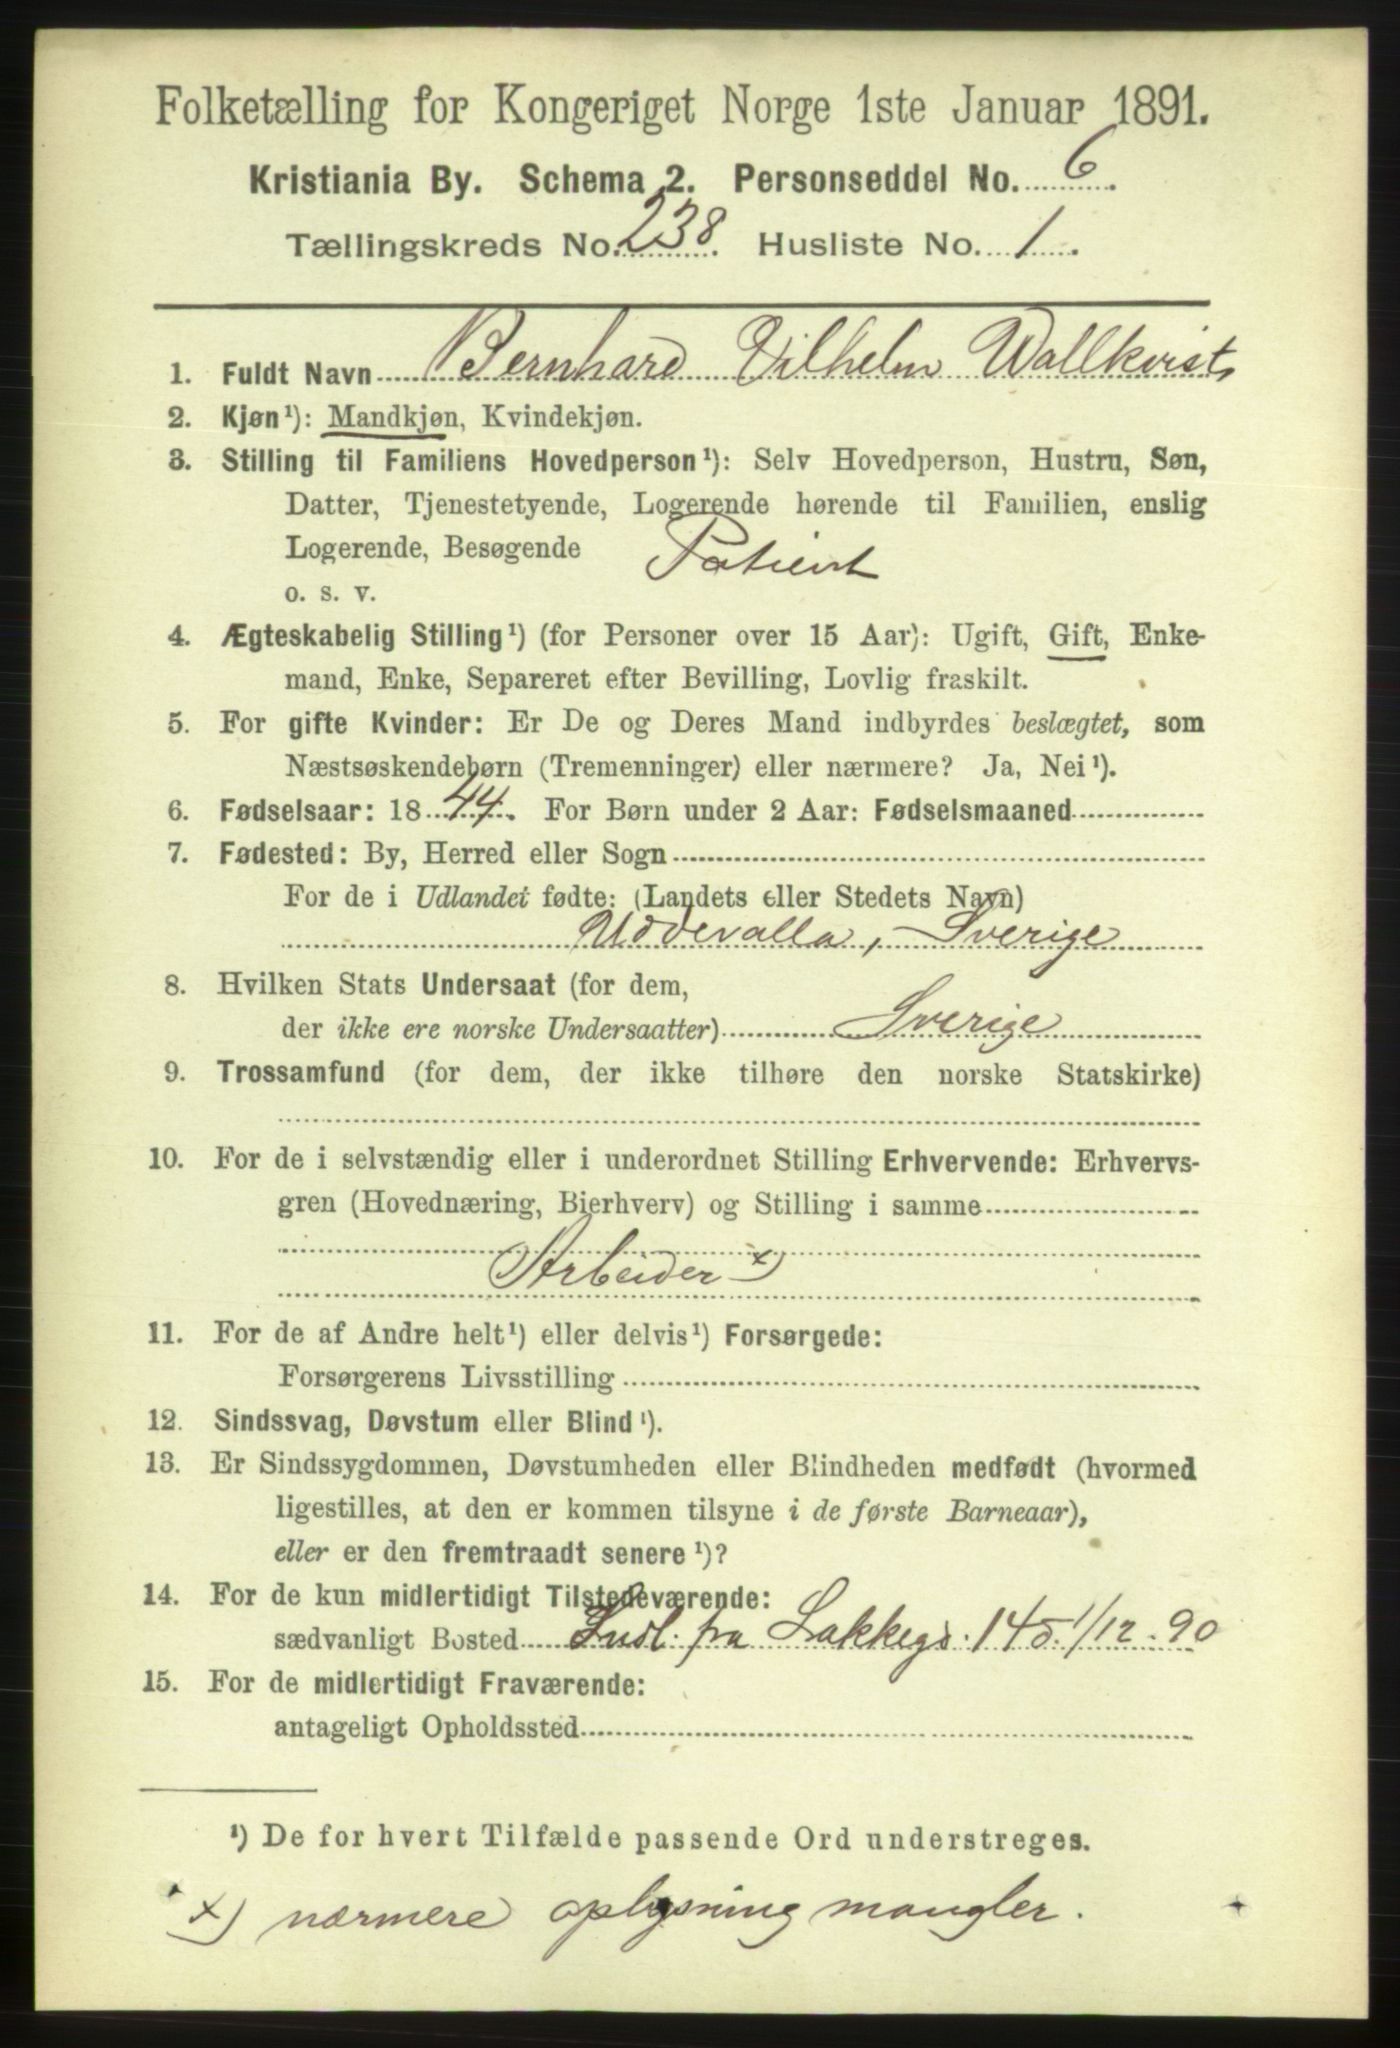 Folketælling for Kongeriget Norge 1ste Januar 1891.
Kristiania By. Schema 2. Personseddel No. 6.
Tællingskreds No. 238. Husliste No. 1.
1. Fuldt Navn Bernhard Vilhelm Wallkvist
2. Kjøn¹): Mandkjøn, Kvindekjøn.
3. Stilling til Familiens Hovedperson¹): Selv Hovedperson, Hustru, Søn,
Datter, Tjenestetyende, Logerende hørende til Familien, enslig
Logerende, Besøgende Patient
o. s. v.
4. Ægteskabelig Stilling¹) (for Personer over 15 Aar): Ugift, Gift, Enke-
mand, Enke, Separeret efter Bevilling, Lovlig fraskilt.
5. For gifte Kvinder: Er De og Deres Mand indbyrdes beslægtet, som
Næstsøskendebørn (Tremenninger) eller nærmere? Ja, Nei¹).
6. Fødselsaar: 1844. For Børn under 2 Aar: Fødselsmaaned
7. Fødested: By, Herred eller Sogn
For de i Udlandet fødte: (Landets eller Stedets Navn)
Uddevalla, Sverige
8. Hvilken Stats Undersaat (for dem,
der ikke ere norske Undersaatter) Sverige
9. Trossamfund (for dem, der ikke tilhøre den norske Statskirke)
10. For de i selvstændig eller i underordnet Stilling Erhvervende: Erhvervs-
gren (Hovednæring, Bierhverv) og Stilling i samme
Arbeider x)
11. For de af Andre helt¹) eller delvis¹) Forsørgede:
Forsørgerens Livsstilling
12. Sindssvag, Døvstum eller Blind¹).
13. Er Sindssygdommen, Døvstumheden eller Blindheden medfødt (hvormed
ligestilles, at den er kommen tilsyne i de første Barneaar),
eller er den fremtraadt senere¹)?
14. For de kun midlertidigt Tilstedeværende:
sædvanligt Bosted Indl. fra Lakkegd. 145. 1/12. 90
15. For de midlertidigt Fraværende:
antageligt Opholdssted
¹) De for hvert Tilfælde passende Ord understreges.
x) nærmere oplysning mangler.